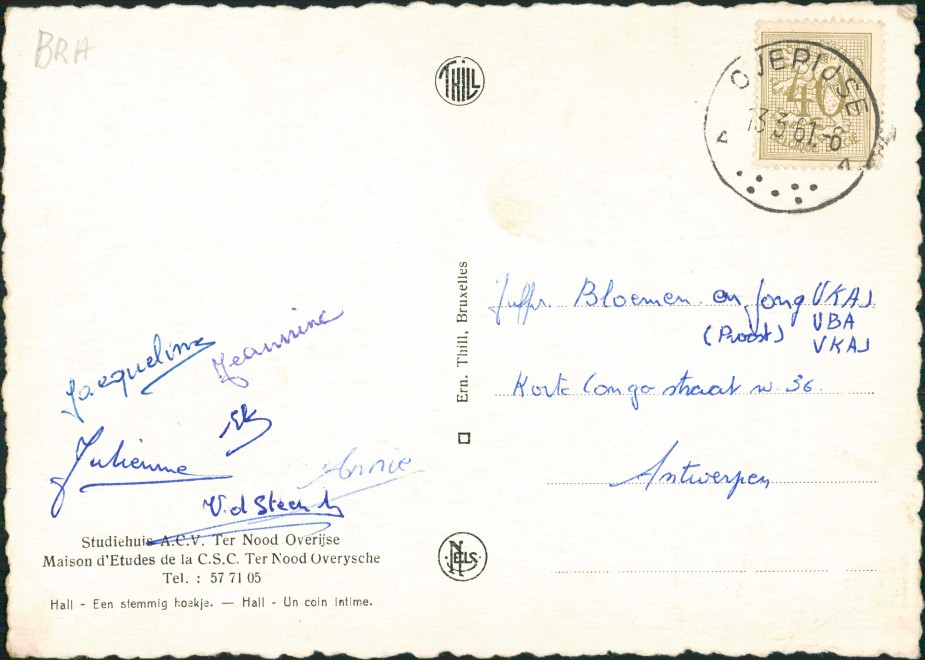 BRA
THILL
OVERIJSE
40
13 3 61.-6
BELGIQUE BELGIË
Jacqueline
Jeannine
Julienne
Annie
V.d Steen
Studiehuis A.C.V. Ter Nood Overijse
Maison d'Etudes de la C.S.C. Ter Nood Overysche
Tel. : 57 71 05
Hall - Een stemmig hoekje. — Hall - Un coin intime.
Ern. Thill, Bruxelles
NELS
Juffr. Bloemen en Jong VKAJ
(Proost) VBA
VKAJ
Korte Congo straat nr 36.
Antwerpen